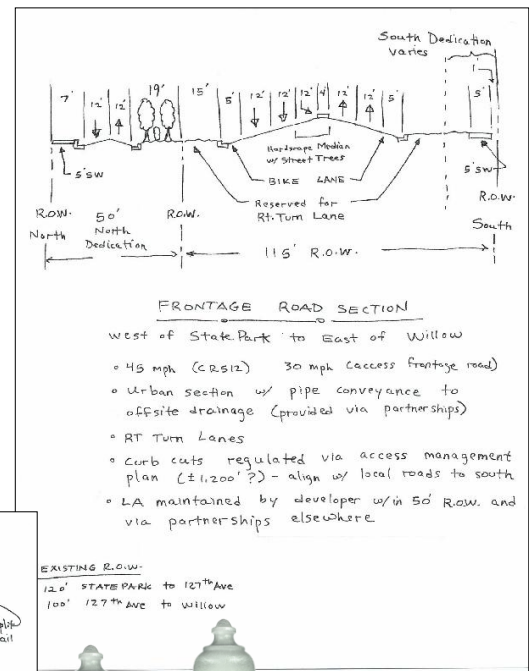 South Dedication
varies
7' 12' 12' 19' 15' 5' 12' 12' 12' 4' 12' 12' 5' 1' 5'
Hardscape Median
w/ Street Trees
5' SW
BIKE LANE
5' SW
Reserved for
Rt. Turn Lane
R.O.W. 50' R.O.W. R.O.W.
North North South
Dedication
115' R.O.W.
FRONTAGE ROAD SECTION
West of State Park to East of Willow
• 45 mph (CR512) 30 mph (access frontage road)
• Urban section w/ pipe conveyance to
offsite drainage (provided via partnerships)
• RT Turn Lanes
• Curb cuts regulated via access management
plan (±1,200' ?) - align w/ local roads to south
• LA maintained by developer w/in 50' R.O.W. and
via partnerships elsewhere
EXISTING R.O.W.
120' STATE PARK to 127th Ave
100' 127th Ave to Willow